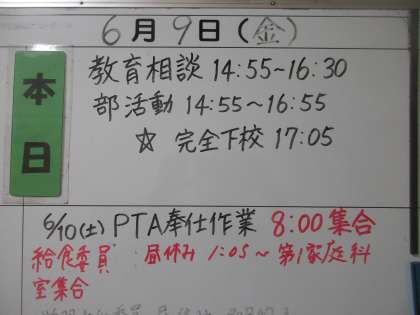 6月9日(金)
本日
教育相談 14:55~16:30
部活動 14:55~16:55
☆ 完全下校 17:05
6/10(土) PTA奉仕作業 8:00集合
給食委員 昼休み 1:05~ 第1家庭科
室集合